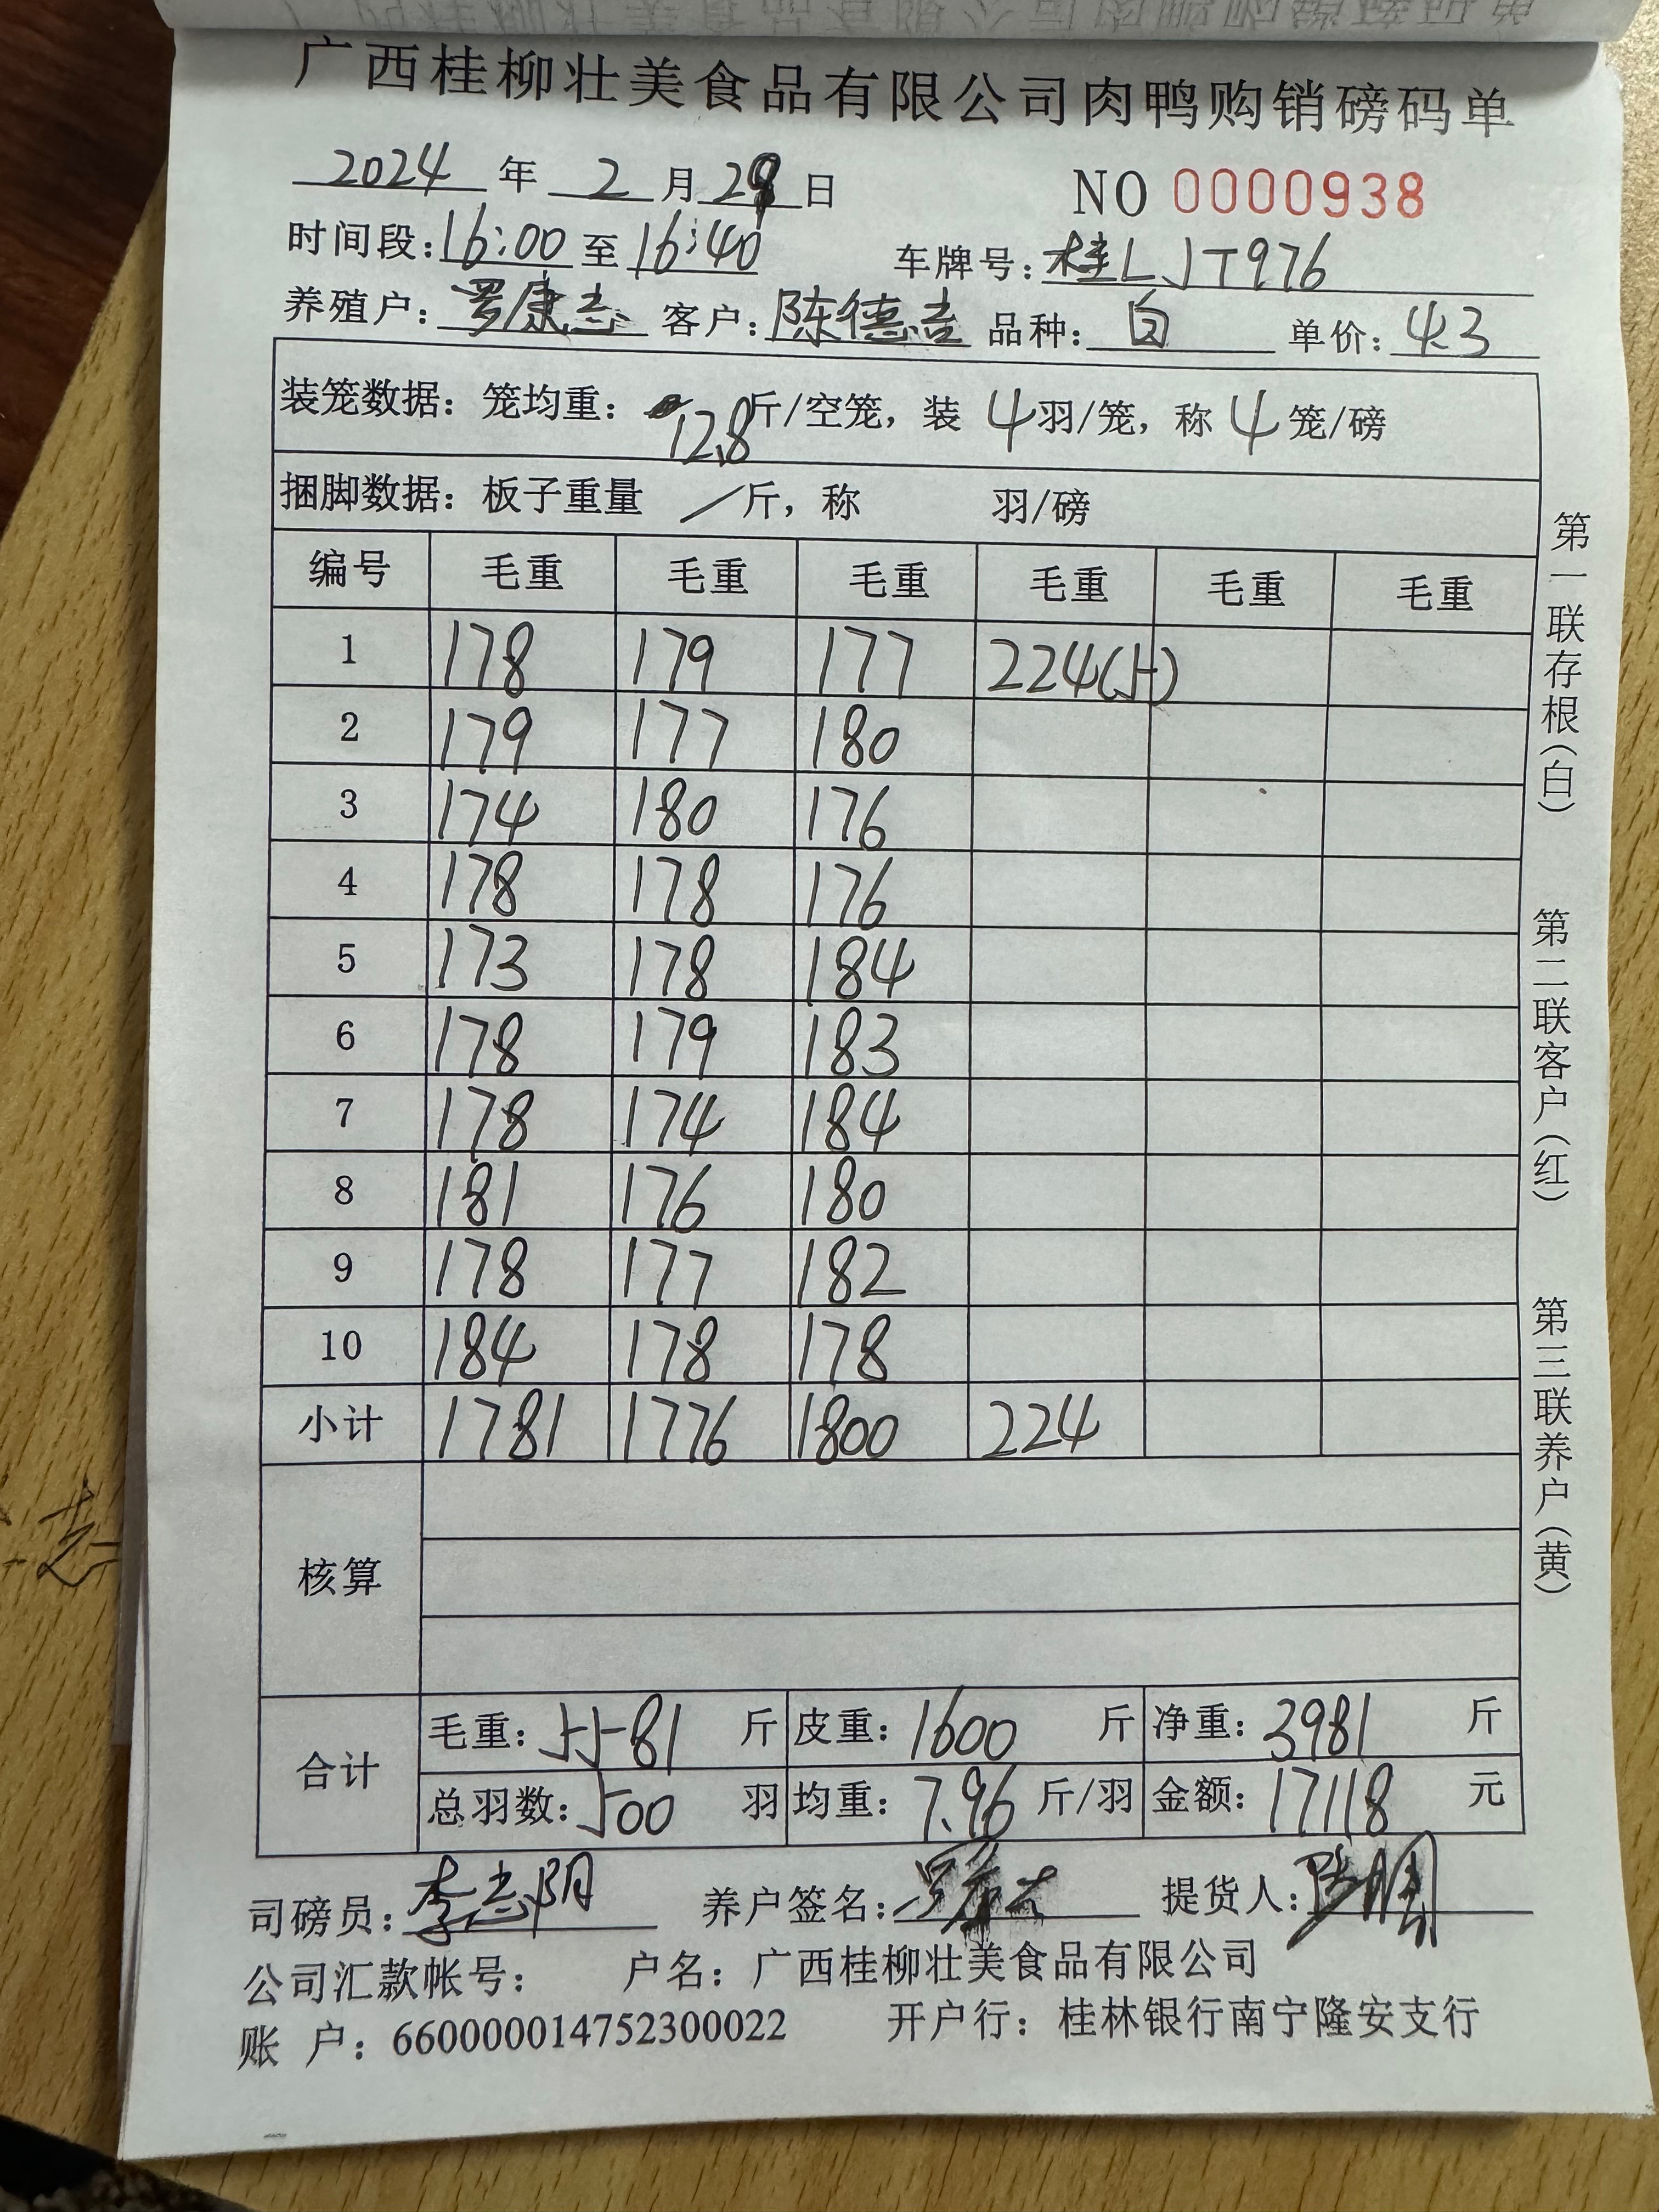 广西桂柳壮美食品有限公司肉鸭购销磅码单
2024 年 2 月 28 日 NO 0000938
时间段:16:00 至 16:40 车牌号:桂LJT976
养殖户:罗康志 客户:陈德吉 品种:白 单价:4.3
装笼数据:笼均重: 12.8 斤/空笼,装 4 羽/笼,称 4 笼/磅
捆脚数据:板子重量 / 斤,称 羽/磅
编号 毛重 毛重 毛重 毛重 毛重 毛重
1 178 179 177 224(5)
2 179 177 180
3 174 180 176
4 178 178 176
5 173 178 184
6 178 179 183
7 178 174 184
8 181 176 180
9 178 177 182
10 184 178 178
小计 1781 1776 1800 224
核算
合计 毛重:5581 斤 皮重:1600 斤 净重:3981 斤
总羽数:500 羽 均重:7.96 斤/羽 金额:17118 元
司磅员:李志阴 养户签名:罗康志 提货人:
公司汇款帐号: 户名:广西桂柳壮美食品有限公司
账 户:660000014752300022 开户行:桂林银行南宁隆安支行
第一联存根(白)
第二联客户(红)
第三联养户(黄)